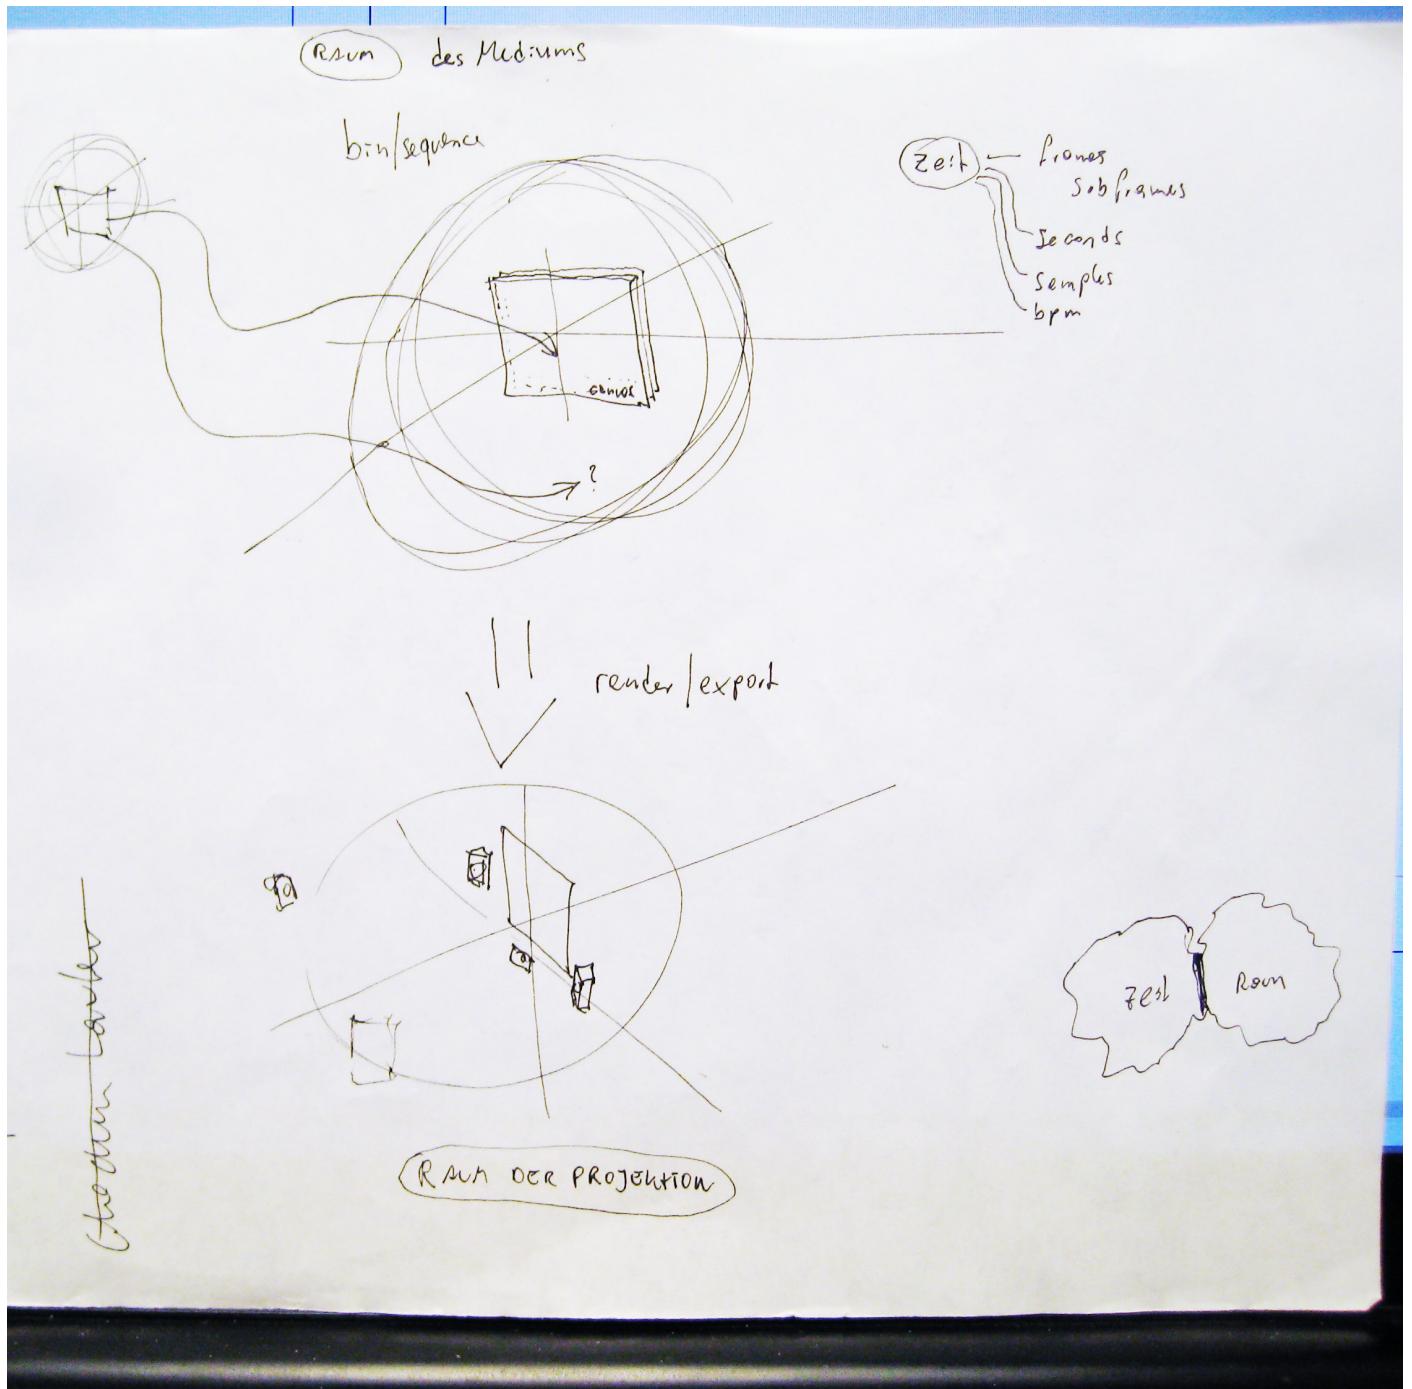 RAUM des Mediums
bin/sequence
Zeit
frames
subframes
Seconds
Samples
bpm
?
render/export
Zeit
Raum
RAUM DER PROJEKTION